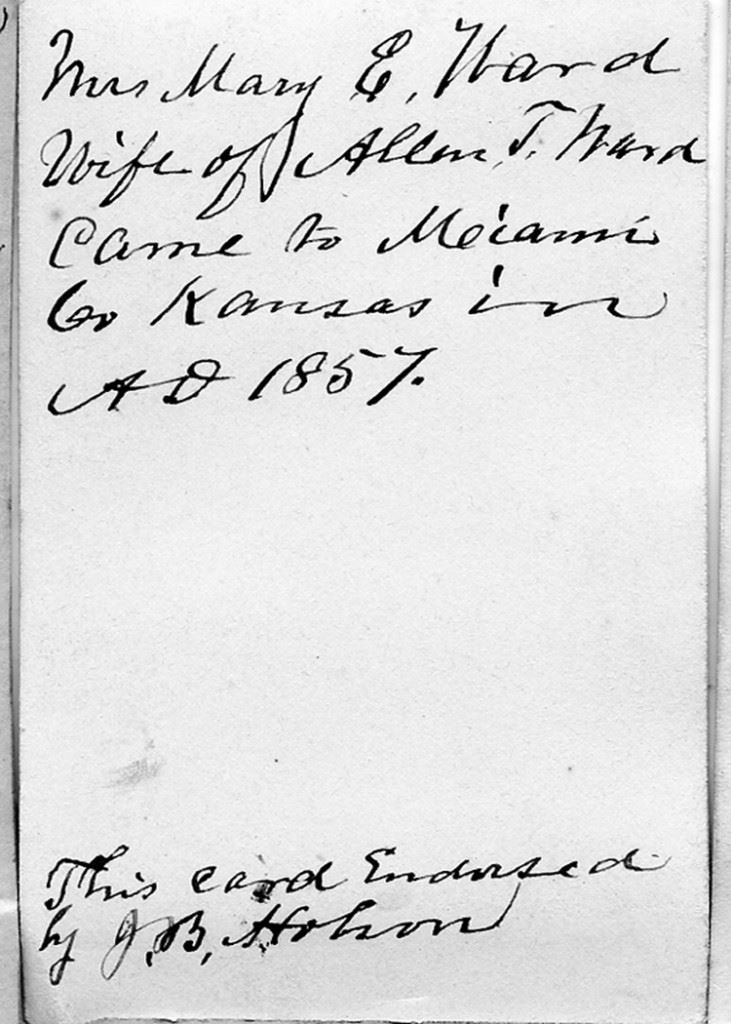 Mrs Mary E, Ward
Wife of Allen T. Ward
Came to Meiami
Co Kansas in
AD 1857.
This card Endorsed
by J, B, Hobson